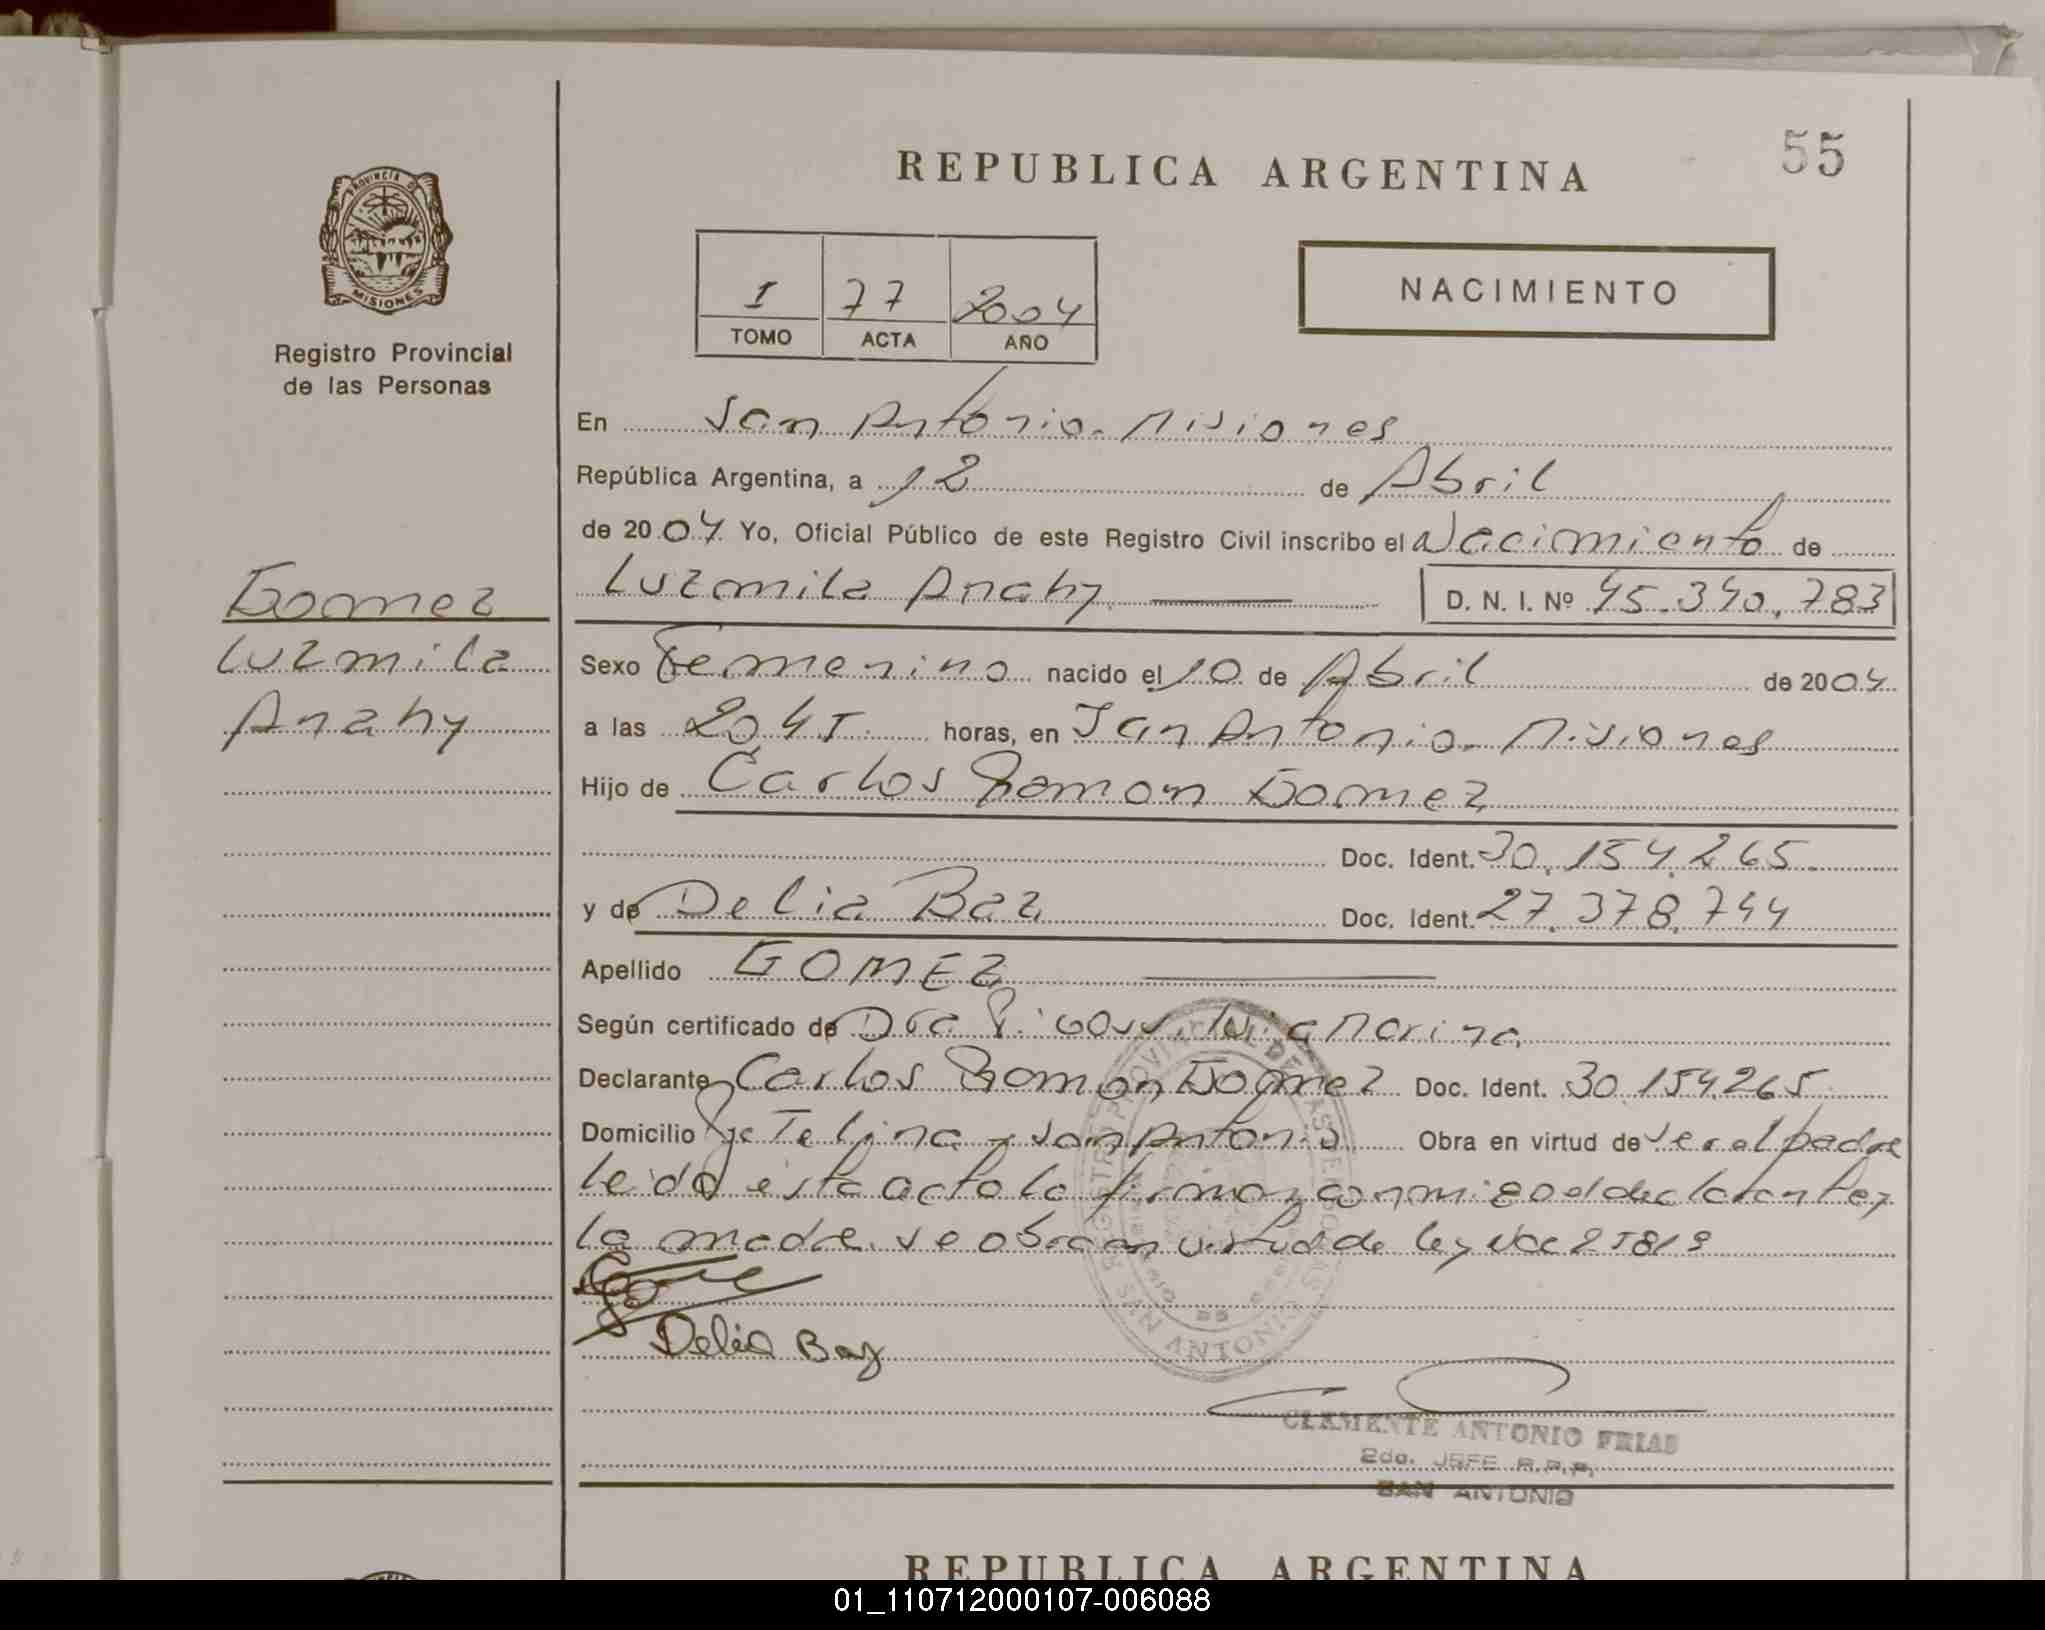 55
REPUBLICA ARGENTINA
PROVINCIA DE
MISIONES
Registro Provincial
de las Personas
I 77 2004
TOMO ACTA AÑO
NACIMIENTO
En San Antonio. Misiones
República Argentina, a 12 de Abril
de 2004 Yo, Oficial Público de este Registro Civil inscribo el Nacimiento de
Luzmila Anahy D. N. I. Nº 45.340.783
Gomez
Luzmila
Anahy
Sexo Femenino nacido el 10 de Abril de 2004
a las 20,45 horas, en San Antonio. Misiones
Hijo de Carlos Ramon Gomez
Doc. Ident. 30.154.265
y de Delia Baz Doc. Ident. 27.378.744
Apellido GOMEZ
Según certificado de Dra Marina
Declarante Carlos Ramon Gomez Doc. Ident. 30.154.265
Domicilio San Antonio Obra en virtud de ser el padre
leida esta acta la firma conmigo el declarante y
la madre. se obra en virtud de ley 25819
Delia Baz
REGISTRO PROVINCIAL DE LAS PERSONAS
SAN ANTONIO
CLEMENTE ANTONIO FRIAS
2do. JEFE R.P.P.
SAN ANTONIO
REPUBLICA ARGENTINA
01_110712000107-006088